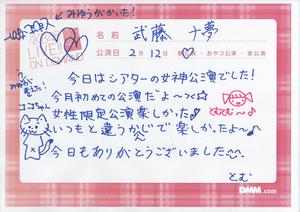 みゆうがかいた!
LIVE!!
ON DEMAND
名前 武藤 十夢
公演日 2月12日 ・おやつ公演・夜公演
今日はシアターの女神公演でした!
今月初めての公演だよ〜っ☆
女性限定公演楽しかった♪
いつもと違うかんじで楽しかったよ〜
今日もありがとうございました^^
とむとむ〜♪
ココちゃん
とむ
DMM.com